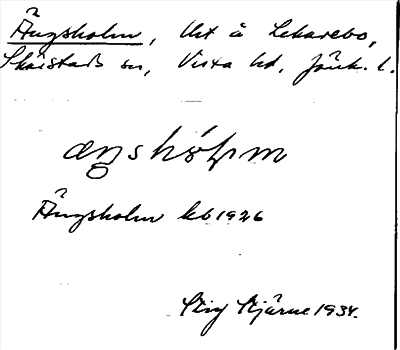 Ängsholm, Utt å Lekarebo,
Skärstads sn, Vista hd, Jönk. l.
ængshólm
Ängsholm kb 1926
Stig Stjärne 1934.